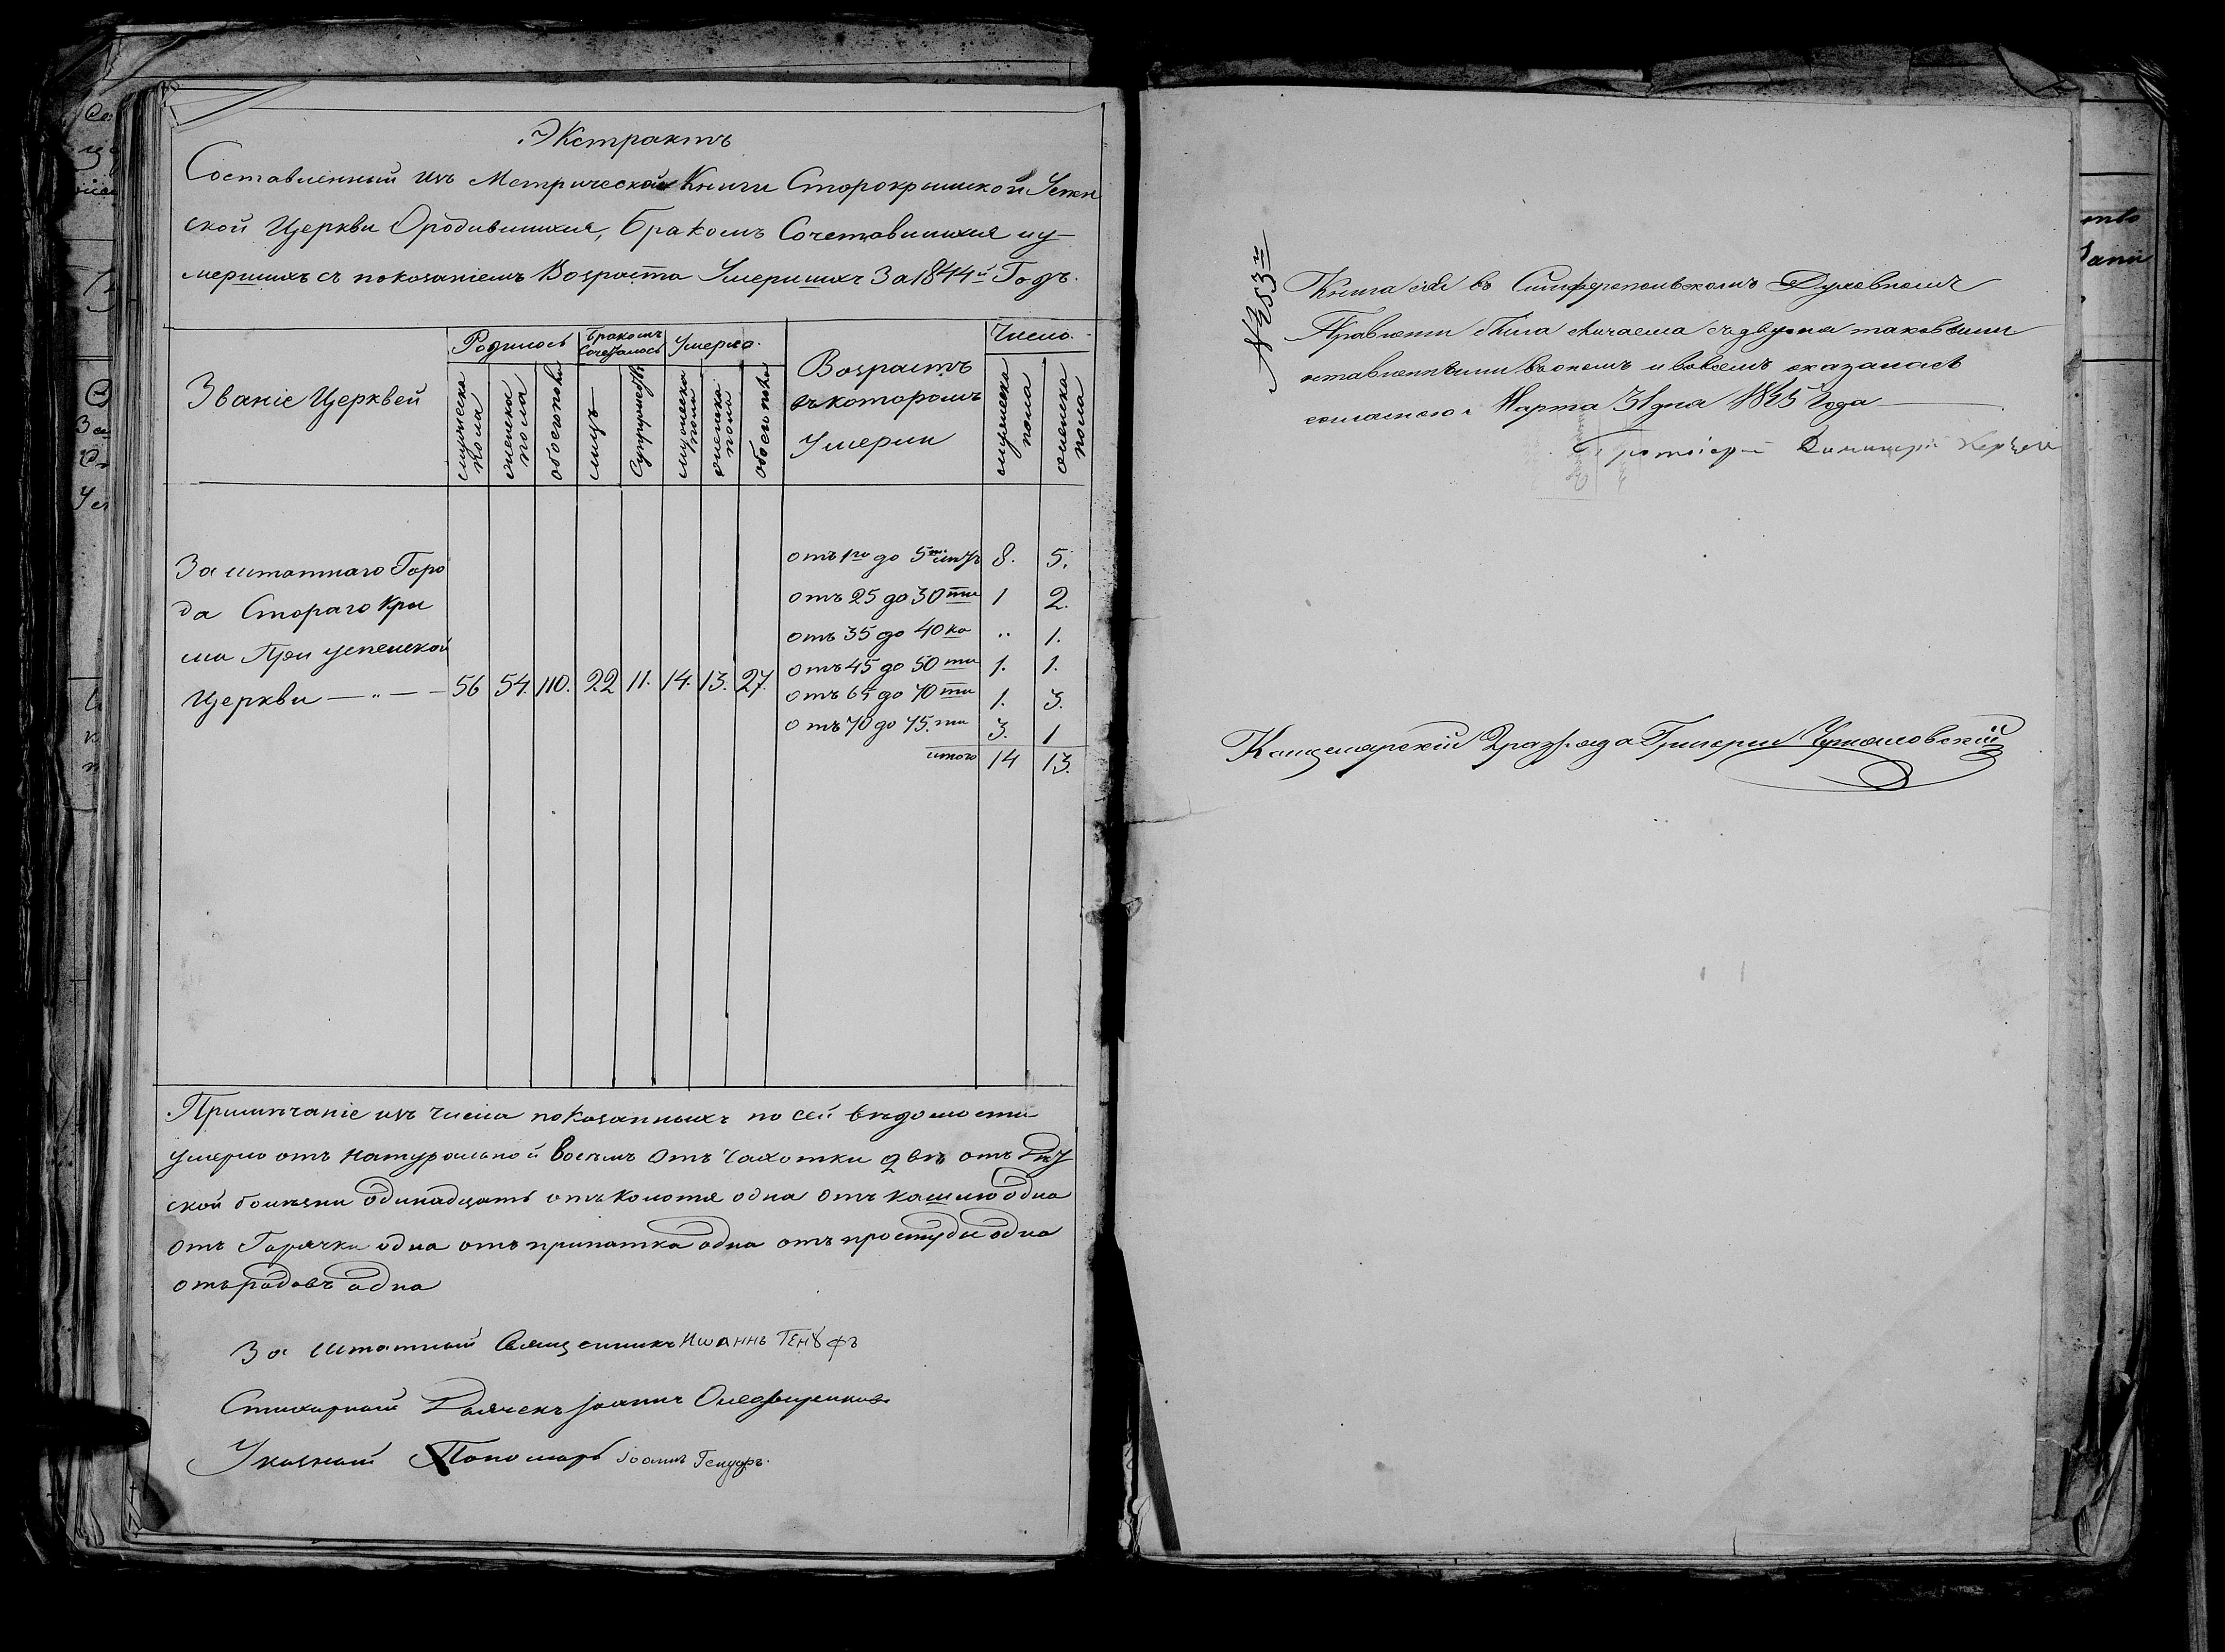 Экстрактъ
Составленный изъ Метрической Книги Старокрымской Успен
ской Церкви Ородившихся, Бракомъ Сочетавшихся иу-
мершихъ съ показаніемъ Возраста Умершихъ За 1844й Годъ.
Званіе Церквей
Родилось
Бракомъ Сочеталось
Умерло.
Возрастъ
въкоторомъ
Умерли
Число.
мужеска пола
женска пола
обоего пола
лицъ
Супружествъ
мужеска пола
женска пола
обоего пола
мужеска пола
женска пола
Заштатнаго Горо
да Стараго Кры
ма При успенской
Церкви — „ — — 56 54. 110. 22 11. 14. 13. 27.
отъ 1го до 5ти лѣтъ 8. 5.
отъ 25 до 30ти 1 2.
отъ 35 до 40ка „ 1.
отъ 45 до 50ти 1. 1.
отъ 65 до 70ти 1. 3.
отъ 70 до 75.ти 3. 1
итого 14 13.
Примѣчаніе изъ числа показанныхъ по сей вѣдомости
умерло отъ натуральной восемъ отъ чахотки двѣ отъ Дѣт
ской болѣзни одинадцать отъ колотя одна отъ кашлю одна
отъ Горячки одна отъ припатка одна отъ простуды одна
отъ родовъ одна
Заштатный Священникъ Иѡаннъ Генꙋфъ
Стихарный Дьячекъ Іоаннъ
Указный Пономарь Іоаннъ Генуфъ.
№ 283й
Книга сія въ Симферопольскомъ Духовномъ
Правленіи была сличаема съ двумя таковыми
оставленными въ ономъ и вовсемъ оказалась
согласною. Марта 31 дня 1845 года —
Протоіерей Димитрій
Канцелярскій 2 разряда Григорій